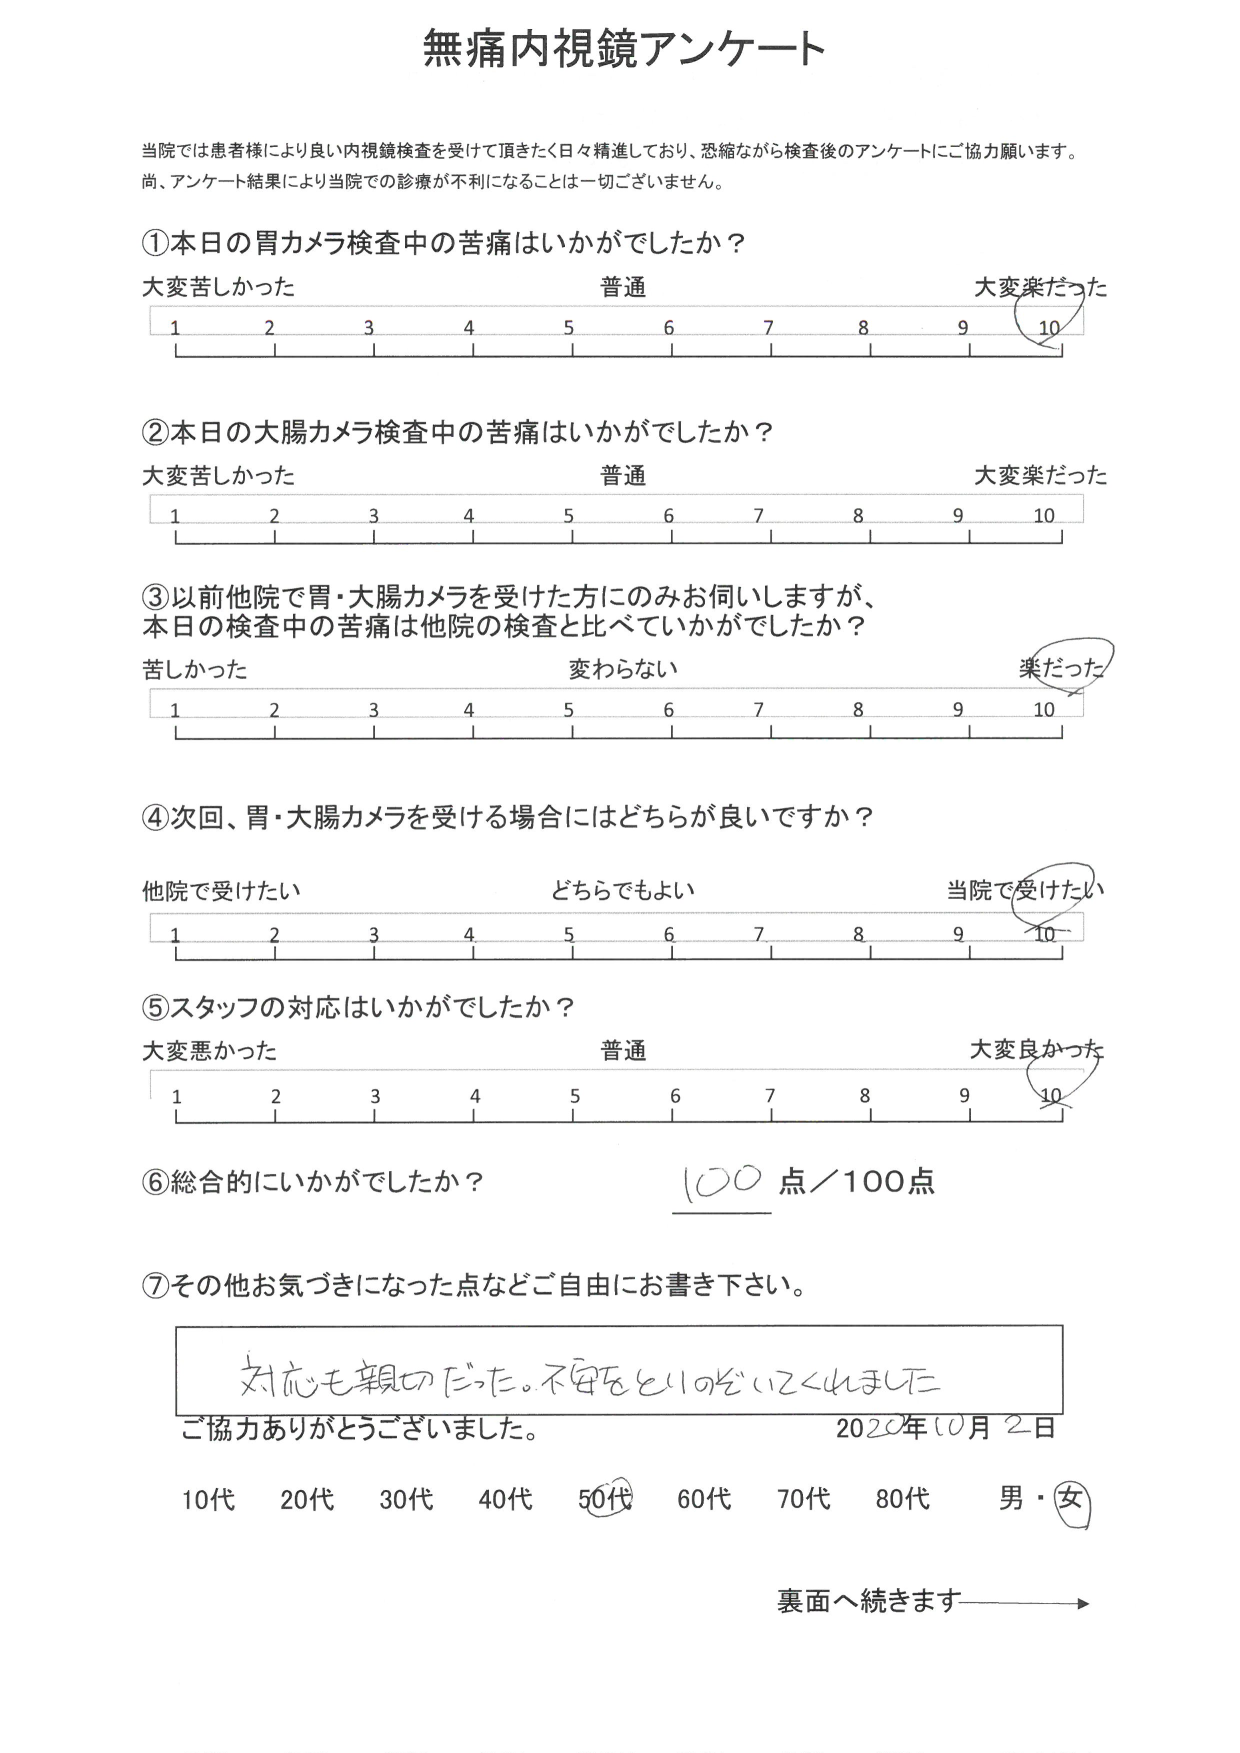 無痛内視鏡アンケート
当院では患者様により良い内視鏡検査を受けて頂きたく日々精進しており、恐縮ながら検査後のアンケートにご協力願います。
尚、アンケート結果により当院での診療が不利になることは一切ございません。
①本日の胃カメラ検査中の苦痛はいかがでしたか？
大変苦しかった 普通 大変楽だった
1 2 3 4 5 6 7 8 9 10
②本日の大腸カメラ検査中の苦痛はいかがでしたか？
大変苦しかった 普通 大変楽だった
1 2 3 4 5 6 7 8 9 10
③以前他院で胃・大腸カメラを受けた方にのみお伺いしますが、
本日の検査中の苦痛は他院の検査と比べていかがでしたか？
苦しかった 変わらない 楽だった
1 2 3 4 5 6 7 8 9 10
④次回、胃・大腸カメラを受ける場合にはどちらが良いですか？
他院で受けたい どちらでもよい 当院で受けたい
1 2 3 4 5 6 7 8 9 10
⑤スタッフの対応はいかがでしたか？
大変悪かった 普通 大変良かった
1 2 3 4 5 6 7 8 9 10
⑥総合的にいかがでしたか？ 100 点／100点
⑦その他お気づきになった点などご自由にお書き下さい。
対応も親切だった。不安をとりのぞいてくれました
ご協力ありがとうございました。 2020年10月2日
10代 20代 30代 40代 50代 60代 70代 80代 男・女
裏面へ続きます